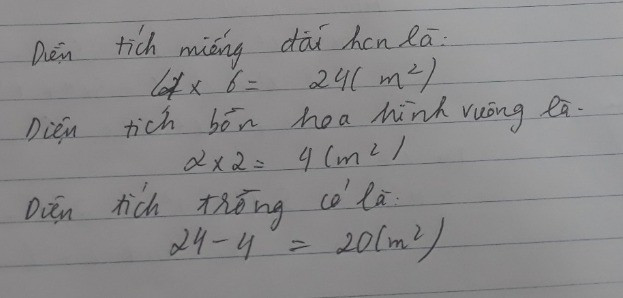 Diện tích miếng đất hcn là:
4 x 6 = 24( m²)
Diện tích bồn hoa hình vuông là.
2 x 2 = 4 (m²)
Diện tích trồng cỏ là:
24 - 4 = 20(m²)